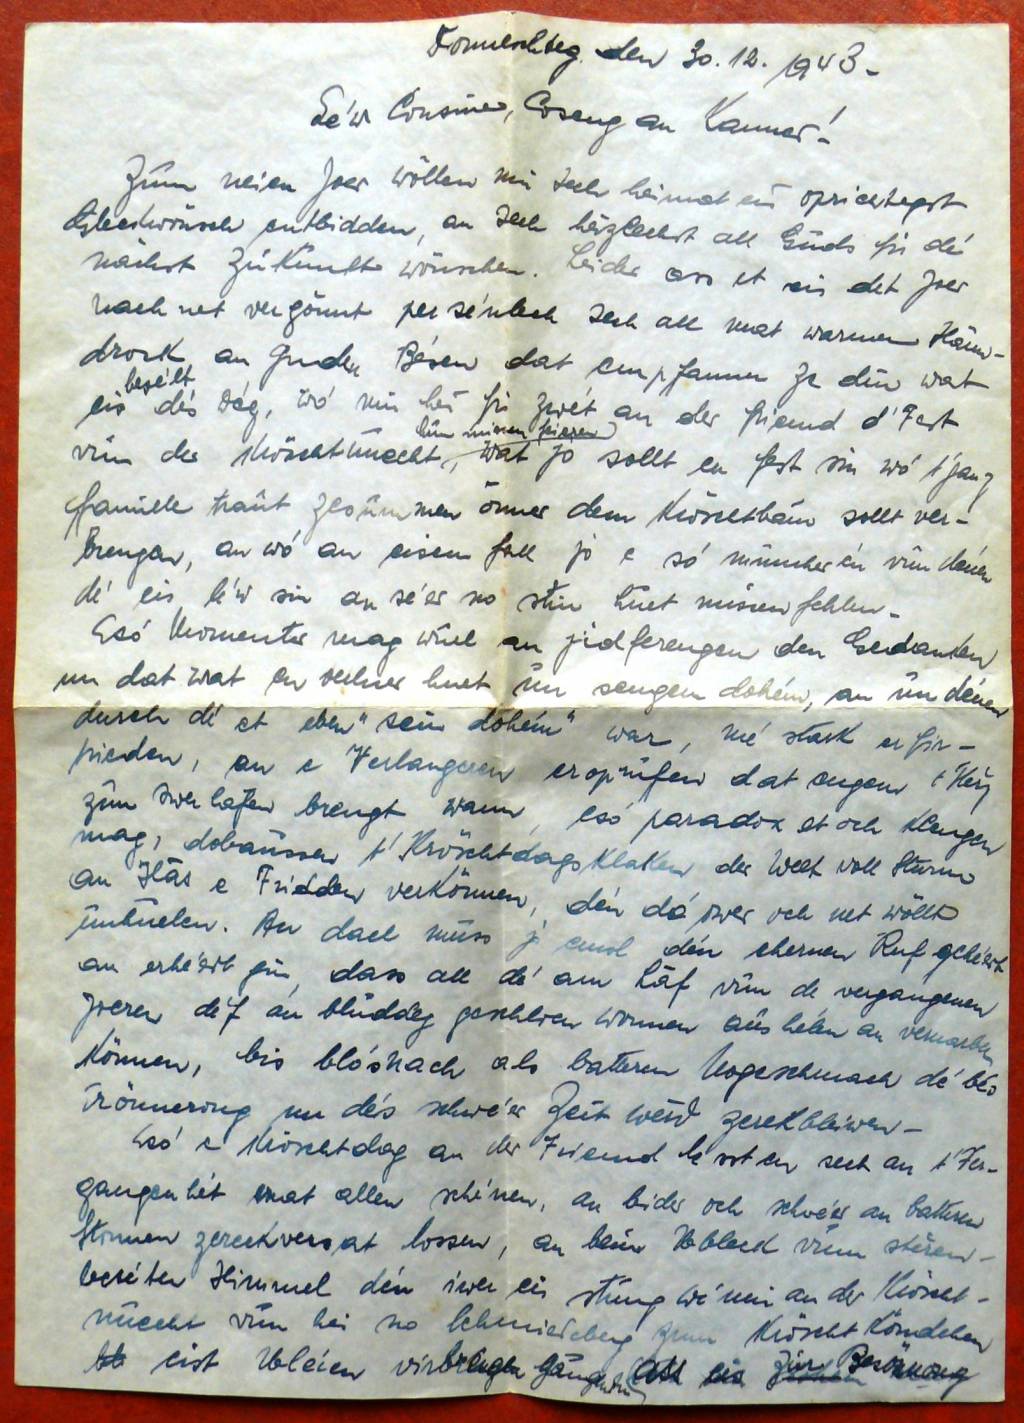 Donneschteg den 30.12.1943-
Lé'w Cousine, Coseng an Kanner!
Zum neien Joer wöllen mir Iech heimat eis oprichtegst
Gleckwönsch entbidden, an Iech häzlechst all Guds fir dé
nächst Zukunft wönschen. Leider ass et eis dét Joer
nach net vergönnt perséinlech Iech all mat warmen Hänn-
drock an guden Bésen dat empfannen ze din wat
eis beséilt dés Dég, wó mir hei fir zwét an der friemd d'Fest
vun der Kröschtnuecht, hun missen feieren wat jo sollt en Fest sin wó t'ganz
Famille traut zesummen önner dem Kröschtbam sollt ver-
brengen, an wó an eisem Fall jo e só muncher én vun dénen
dé eis lé'w sin an sé'er no stin huet missen fehlen-
Esó Momenter mag wuel an jidferengem den Gedanken
un dat wat en verluer huet un sengem dohém, an un dénen
durch dé et eben "sein dohém" war, mé stark erfir-
frieden, an e Verlangeren eroprufen dat engem t'Herz
zum iwerlafen brengt wann, esó paradox et och klengen
mag, dobaussen t'Kröschtdagsklaken der Welt voll Sturm
an Hâs e Fridden verkönnen, dén dá jower och net wöllt
unhuelen. An dach muss jo emol dén ehernen Ruf gehéiert
an erhéiert gin, dass all dé am Laf vun de vergangenen
Joeren déf an bluddeg geschloen Wonnen aushélen an vernarben
können, bis blós nach als batteren Nogeschmach dé bés
Erönnerong un dés schwéier Zeit werd zereckbleiwen-
Esó e Kröschtdag an der Friemd lé'sst en sech an t'Ver-
gangenhét mat allen schénen, an leider och schwéier an batteren
Stonnen zereckversat lossen, an beim Ubleck vum stären-
besé'ten Himmel dén iwer eis stung wé mir an der Kröscht-
nuecht vun hei no Schmiedeberg zum Kröscht Köndchen
eist Uleien virbrengen gangen sin, ass eis zur Besönnong